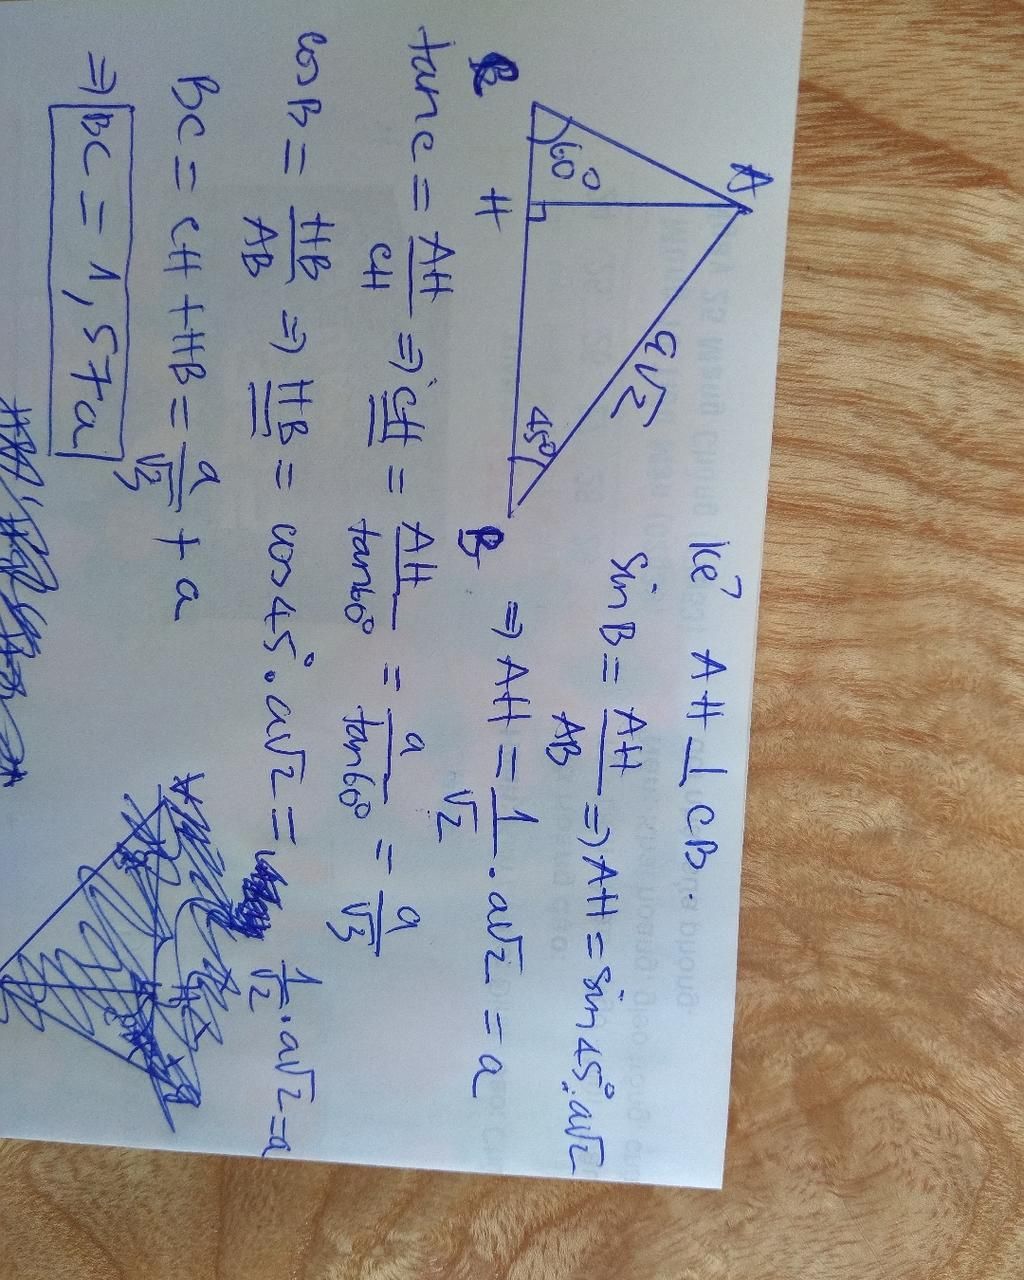 A
60°
a√2
45°
H
B
Kẻ AH ⊥ CB.
sin B = AH/AB ⇒ AH = sin 45°. a√2
⇒ AH = 1/√2 . a√2 = a
tan C = AH/CH ⇒ CH = AH/tan60° = a/tan60° = a/√3
cos B = HB/AB ⇒ HB = cos 45°. a√2 = 1/√2 . a√2 = a
BC = CH + HB = a/√3 + a
⇒ BC = 1,57a